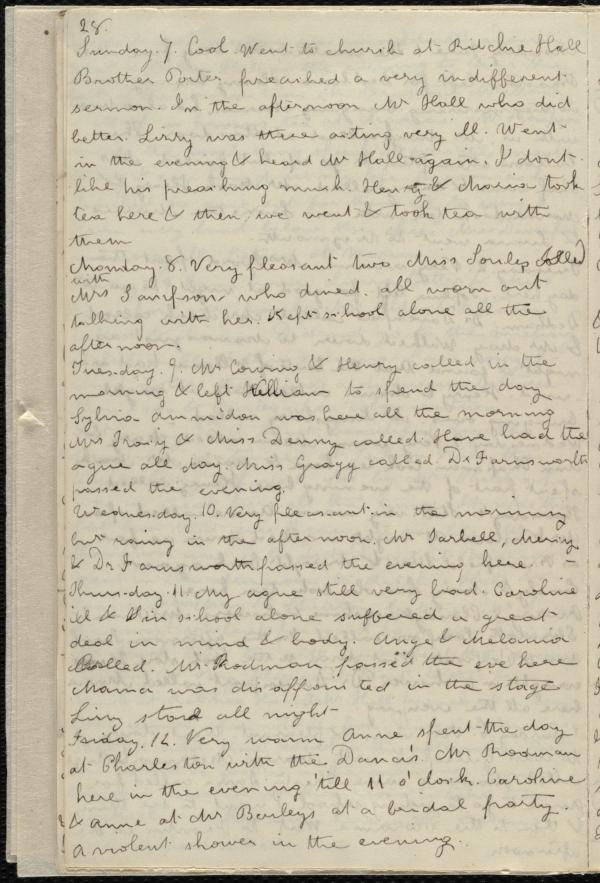 28.
Sunday. 7. Cool. Went to church at Ritchie Hall
Brother Porter preached a very indifferent
sermon. In the afternoon Mr Hall who did
better. Lizzy was there acting very ill. Went
in the evening & heard Mr Hall again. I dont
like his preaching much. Henry & Maria took
tea here & then we went & took tea with
them
Monday. 8. Very pleasant two Miss Soules called
with
Mrs Samson who dined. all worn out
talking with her. Kept school alone all the
afternoon.
Tuesday. 9. Mr Coming & Henry called in the
morning & left William to spend the day
Sylvia Ammidon was here all the morning
Mrs Tracy & Miss Denny called. Have had the
ague all day. Miss Gragg called. Dr Farnsworth
passed the evening.
Wednesday. 10. Very pleasant in the morning
but rainy in the afternoon. Mr Tarbell, Mercy
& Dr Farnsworth passed the evening here. –
Thursday. 11 My ague still very bad. Caroline
ill & I in school alone suffered a great
deal in mind & body. Ange & Melania
called. Mr Rodman passed the eve here
Mama was disappointed in the stage
Lizzy staid all night
Friday. 12. Very warm Anne spent the day
at Charleston with the Dana's. Mr Rhodman
here in the evening 'till 11 o'clock. Caroline
& Anne at Mr Baileys at a bridal party.
A violent shower in the evening.